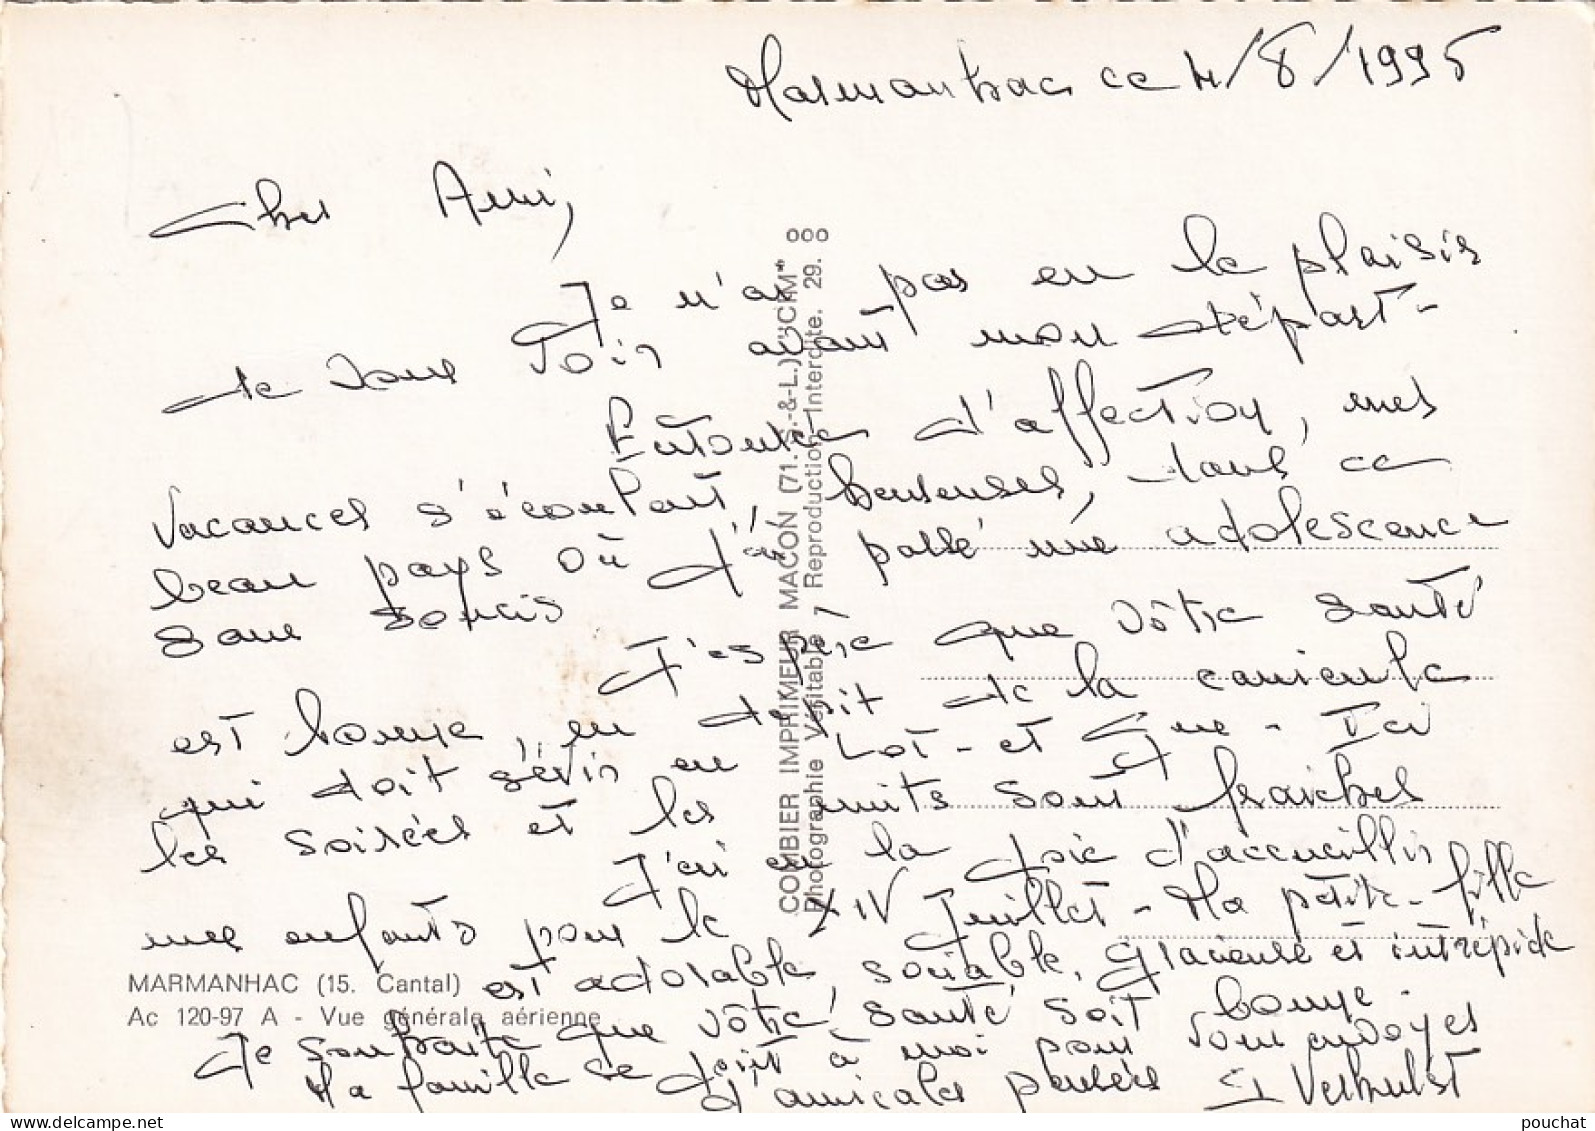 Marmanhac ce 4/8/1995
Cher Ami,
Je n'ai pas eu le plaisir
de vous voir avant mon départ -
Entourée d'affection, mes
vacances s'écoulent, heureuses, dans ce
beau pays où j'ai passé une adolescence
sans soucis
J'espère que vôtre santé
est bonne, en dépit de la canicule
qui doit sévir en Lot - et Gne - Ici
les soirées et les nuits sont fraîches
J'ai eu la joie d'accueillir
mes enfants pour le XIV Juillet - Ma petite-fille
est adorable, sociable, gracieuse et intrépide
Je souhaite que vôtre santé soit bonne.
Ma famille se joint à moi pour vous envoyer
d'amicales pensées Verhulst
MARMANHAC (15. Cantal)
Ac 120-97 A - Vue générale aérienne
COMBIER IMPRIMEUR MACON (71. S.-&-L.) "CIM"
Photographie Véritable - Reproduction Interdite. 29.
pouchat